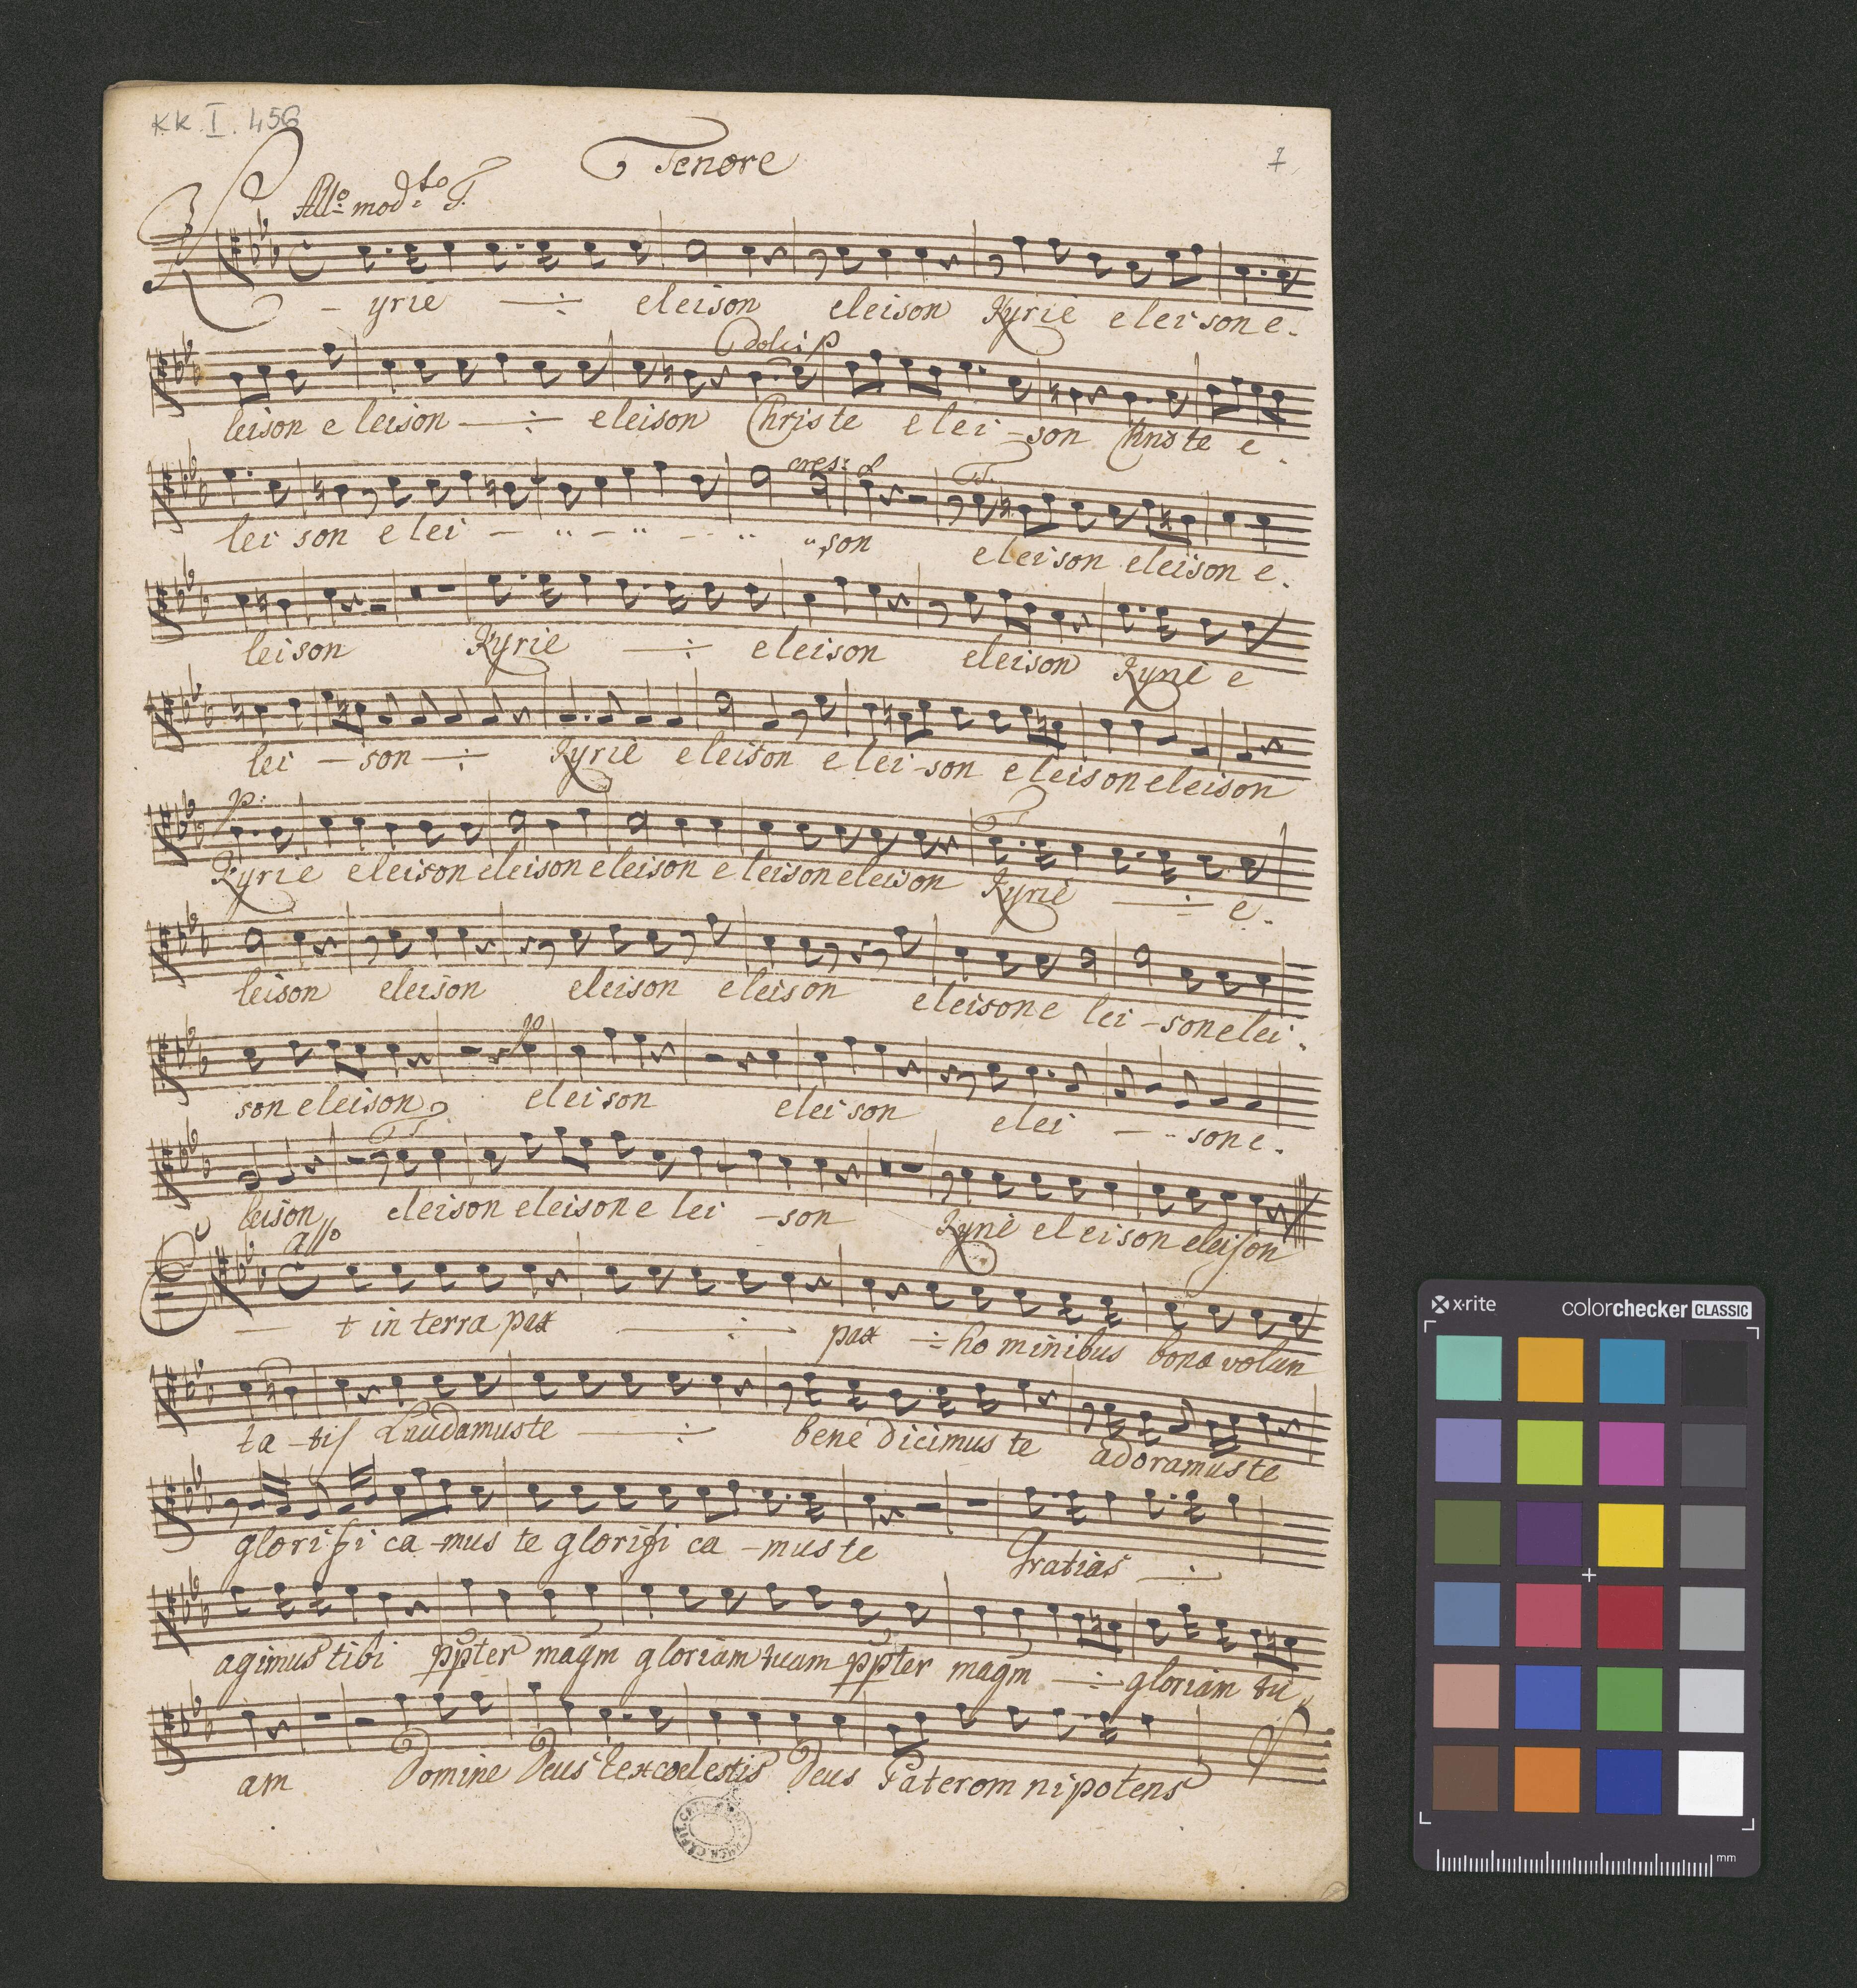 KK. I. 456
Tenore
7
Allo: modto f.
Kyrie -÷- eleison eleison Kyrie eleison e-
dolci p
leison eleison -÷- eleison Christe elei-son Christe e-
cres: f
f.
lei son e lei - - - - son eleison eleison e-
leison Kyrie -÷- eleison eleison Kyrie e
lei - son -÷- Kyrie eleison elei-son eleison eleison
p: f
Kyrie eleison eleison eleison eleison eleison Kyrie -÷- e-
leison eleison eleison eleison eleison e lei-son elei-
p
son eleison eleison eleison elei - - son e-
f.
leison eleison eleison e lei - son Kyrie eleison eleison
allo
Et in terra pax -÷- pax ÷ hominibus bona volun
ta-tis Laudamus te -÷- benedicimus te adoramus te
glorifica-mus te glorifica-mus te Gratias -÷-
agimus tibi ppter magm gloriam tuam ppter magm -÷- gloriam tu
am Domine Deus Rex coelestis Deus Pater omnipotens
x·rite colorchecker CLASSIC
mm